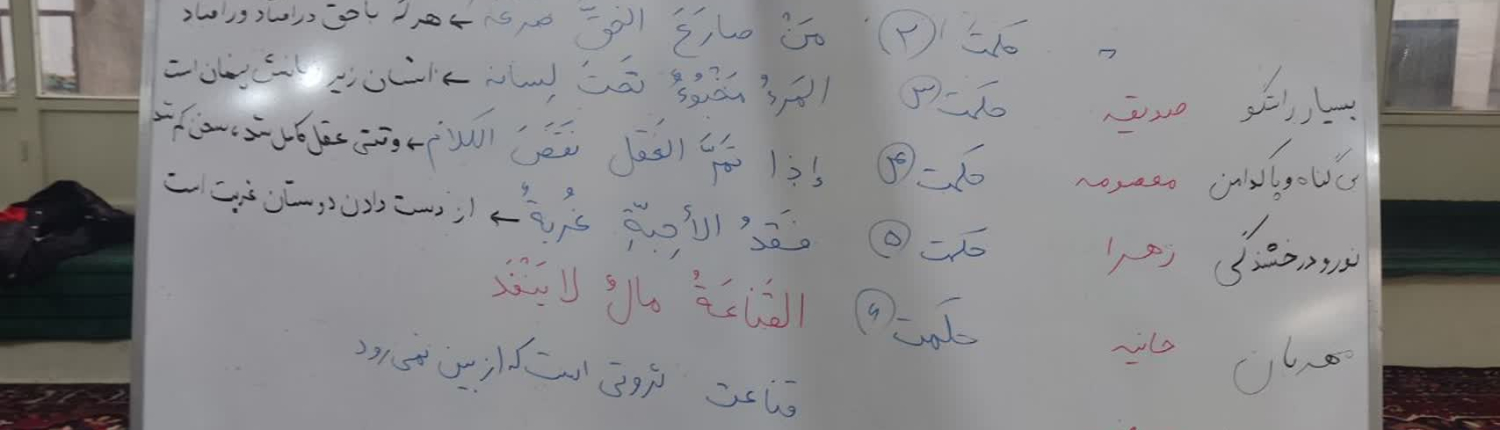 حکمت (۲) مَنْ صارَعَ الحَقَّ صَرَعَهُ ← هر که با حق درافتاد ورافتاد
بسیار راستگو صدیقه حکمت (۳) المَرءُ مَخْبُوءٌ تَحتَ لِسانه ← انسان زیر زبانش پنهان است
بی گناه و پاکدامن معصومه حکمت (۴) إذا تَمَّ العَقل نَقَصَ الکَلام ← وقتی عقل کامل شد، سخن کم شد
نور و درخشندگی زهرا حکمت (۵) فَقدُ الأحِبَّةِ غُربةٌ ← از دست دادن دوستان غربت است
مهربان حانیه حکمت (۶) القَناعَةُ مالٌ لا یَنْفَد
قناعت ثروتی است که از بین نمی رود